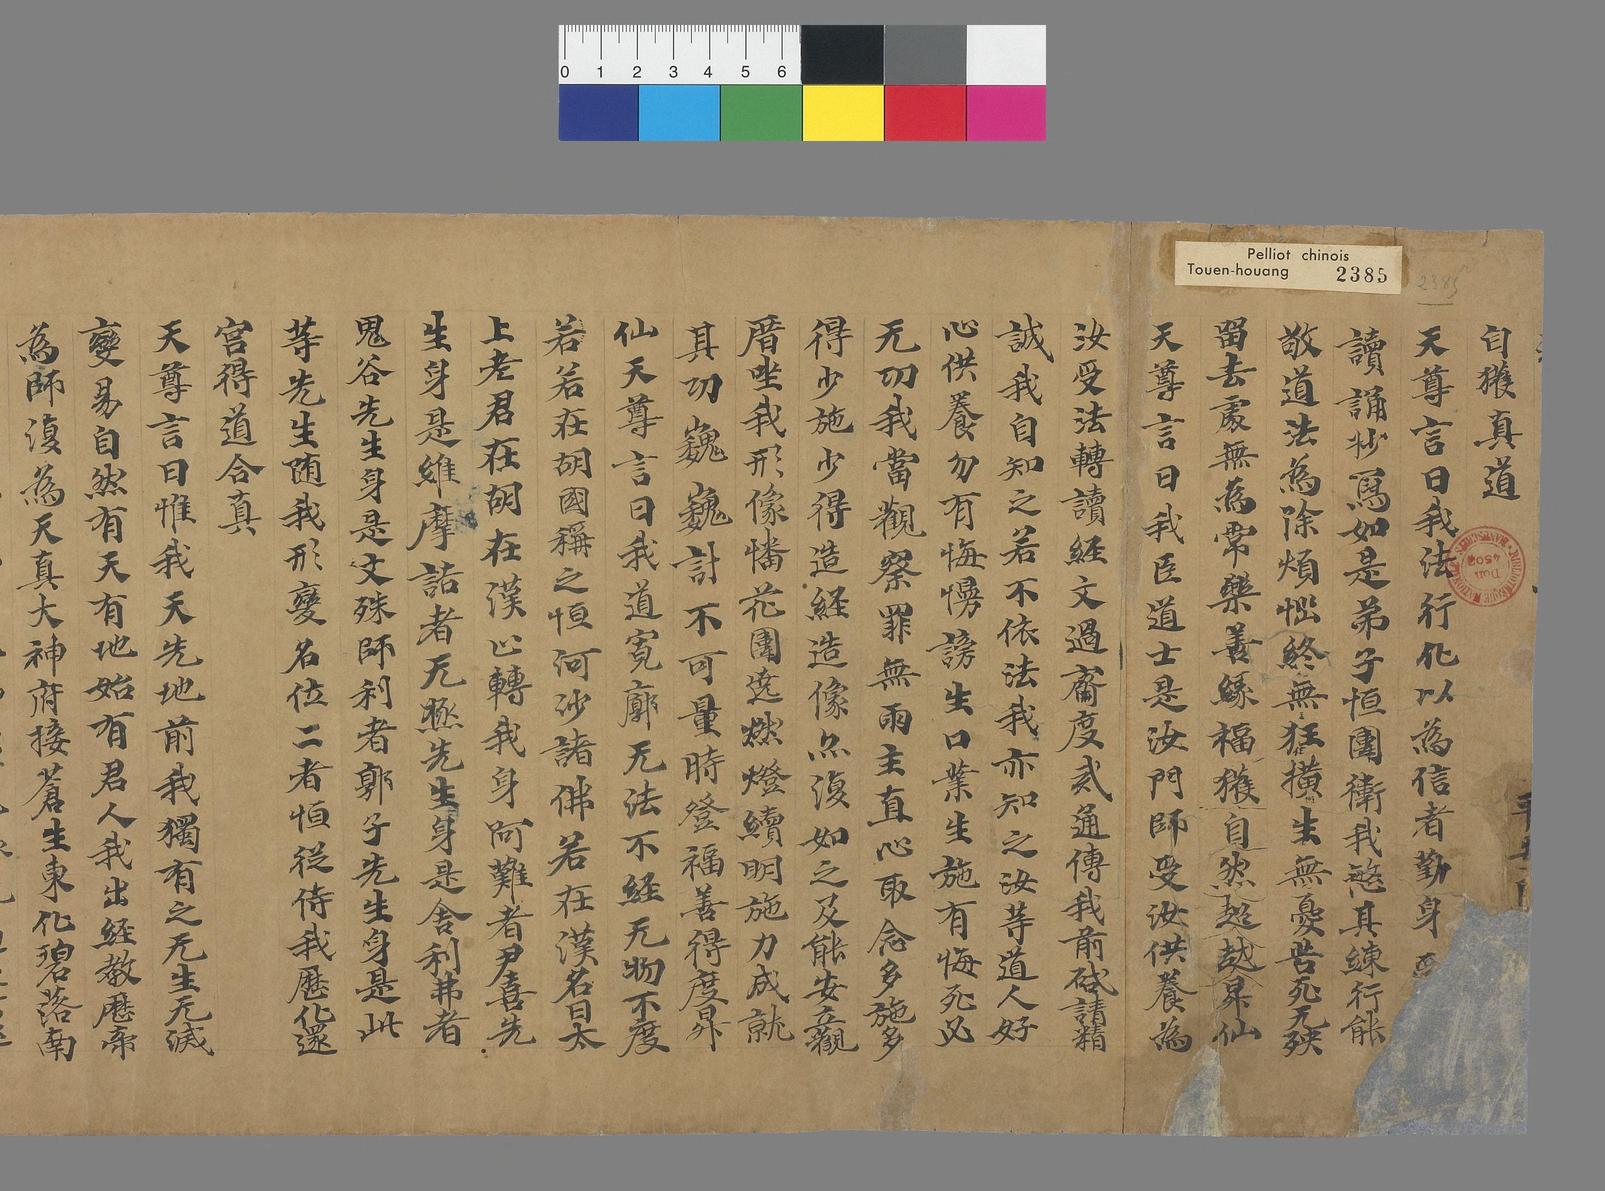 0 1 2 3 4 5 6
Pelliot chinois
Touen-houang 2385
2385
自獲真道
天尊言曰我法行化以為信者勤身
讀誦抄寫如是弟子恒圍衛我慜其練行能
敬道法為除煩惱終無狂橫生無憂苦死无殃
留去處無為常樂善緣福獲自然超越昇仙
天尊言曰我臣道士是汝門師受汝供養為
汝受法轉讀經文過齋度戒通傳我前啟請精
誠我自知之若不依法我亦知之汝等道人好
心供養勿有悔愕謗生口業生施有悔死必
无功我當觀察罪無雨主直心取念多施多
得少施少得造經造像亦復如之及能安立觀
厝坐我形像幡花圍遶燃燈續明施力成就
其功巍巍計不可量時登福善得度昇
仙天尊言曰我道寬廓无法不經无物不度
若若在胡國稱之恒河沙諸佛若在漢名曰太
上老君在胡在漢心轉我身阿難者尹喜先
生身是維摩詰者无㷱先生身是舍利弗者
鬼谷先生身是文殊師利者郭子先生身是此
等先生随我形變名位二者恒從侍我歷化遂
宮得道合真
天尊言曰惟我天先地前我獨有之无生无滅
變易自然有天有地始有君人我出經教歷帝
為師復為天真大神府接蒼生東化碧落南